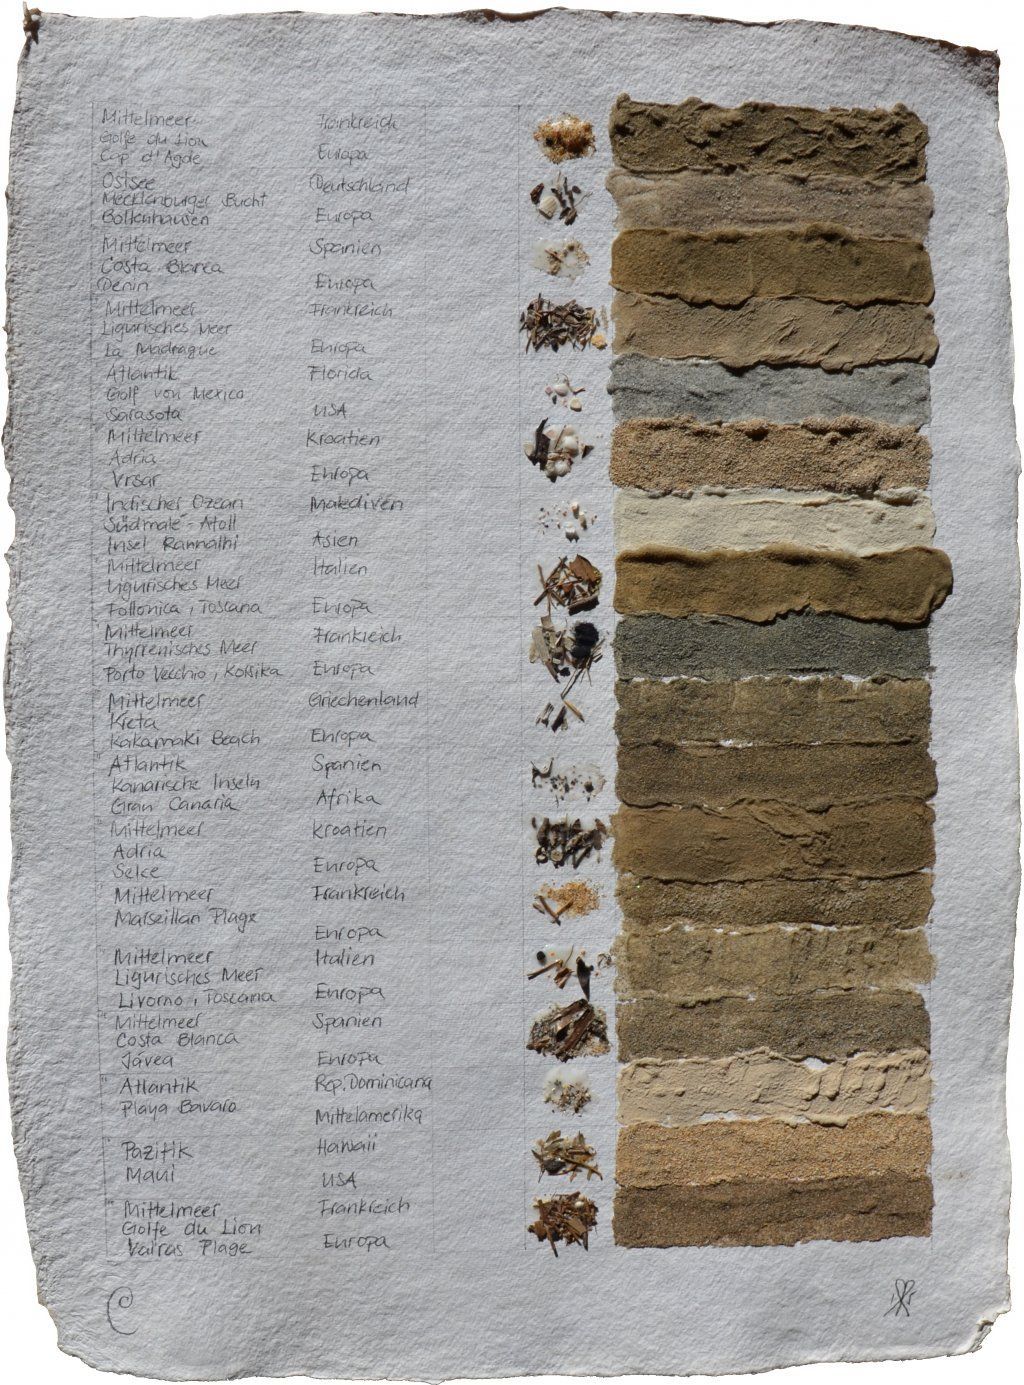 Mittelmeer Frankreich
Golfe du Lion
Cap d'Agde Europa
Ostsee Deutschland
Mecklenburger Bucht
Boltenhausen Europa
Mittelmeer Spanien
Costa Blanca
Denin Europa
Mittelmeer Frankreich
Ligurisches Meer
La Madrague Europa
Atlantik Florida
Golf von Mexico
Sarasota USA
Mittelmeer Kroatien
Adria
Vrsar Europa
Indischer Ozean Malediven
Südmale-Atoll
Insel Rannalhi Asien
Mittelmeer Italien
Ligurisches Meer
Follonica, Toscana Europa
Mittelmeer Frankreich
Thyrrenisches Meer
Porto Vecchio, Korsika Europa
Mittelmeer Griechenland
Kreta
Kakamaki Beach Europa
Atlantik Spanien
Kanarische Inseln
Gran Canaria Afrika
Mittelmeer Kroatien
Adria
Selce Europa
Mittelmeer Frankreich
Marseillan Plage
Europa
Mittelmeer Italien
Ligurisches Meer
Livorno, Toscana Europa
Mittelmeer Spanien
Costa Blanca
Jávea Europa
Atlantik Rep. Dominicana
Playa Bavaro Mittelamerika
Pazifik Hawaii
Maui USA
Mittelmeer Frankreich
Golfe du Lion
Valras Plage Europa